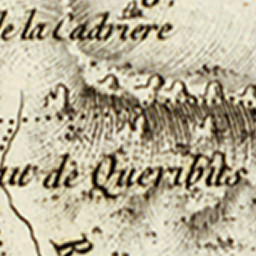 de la Cadriere
ut de Queribus